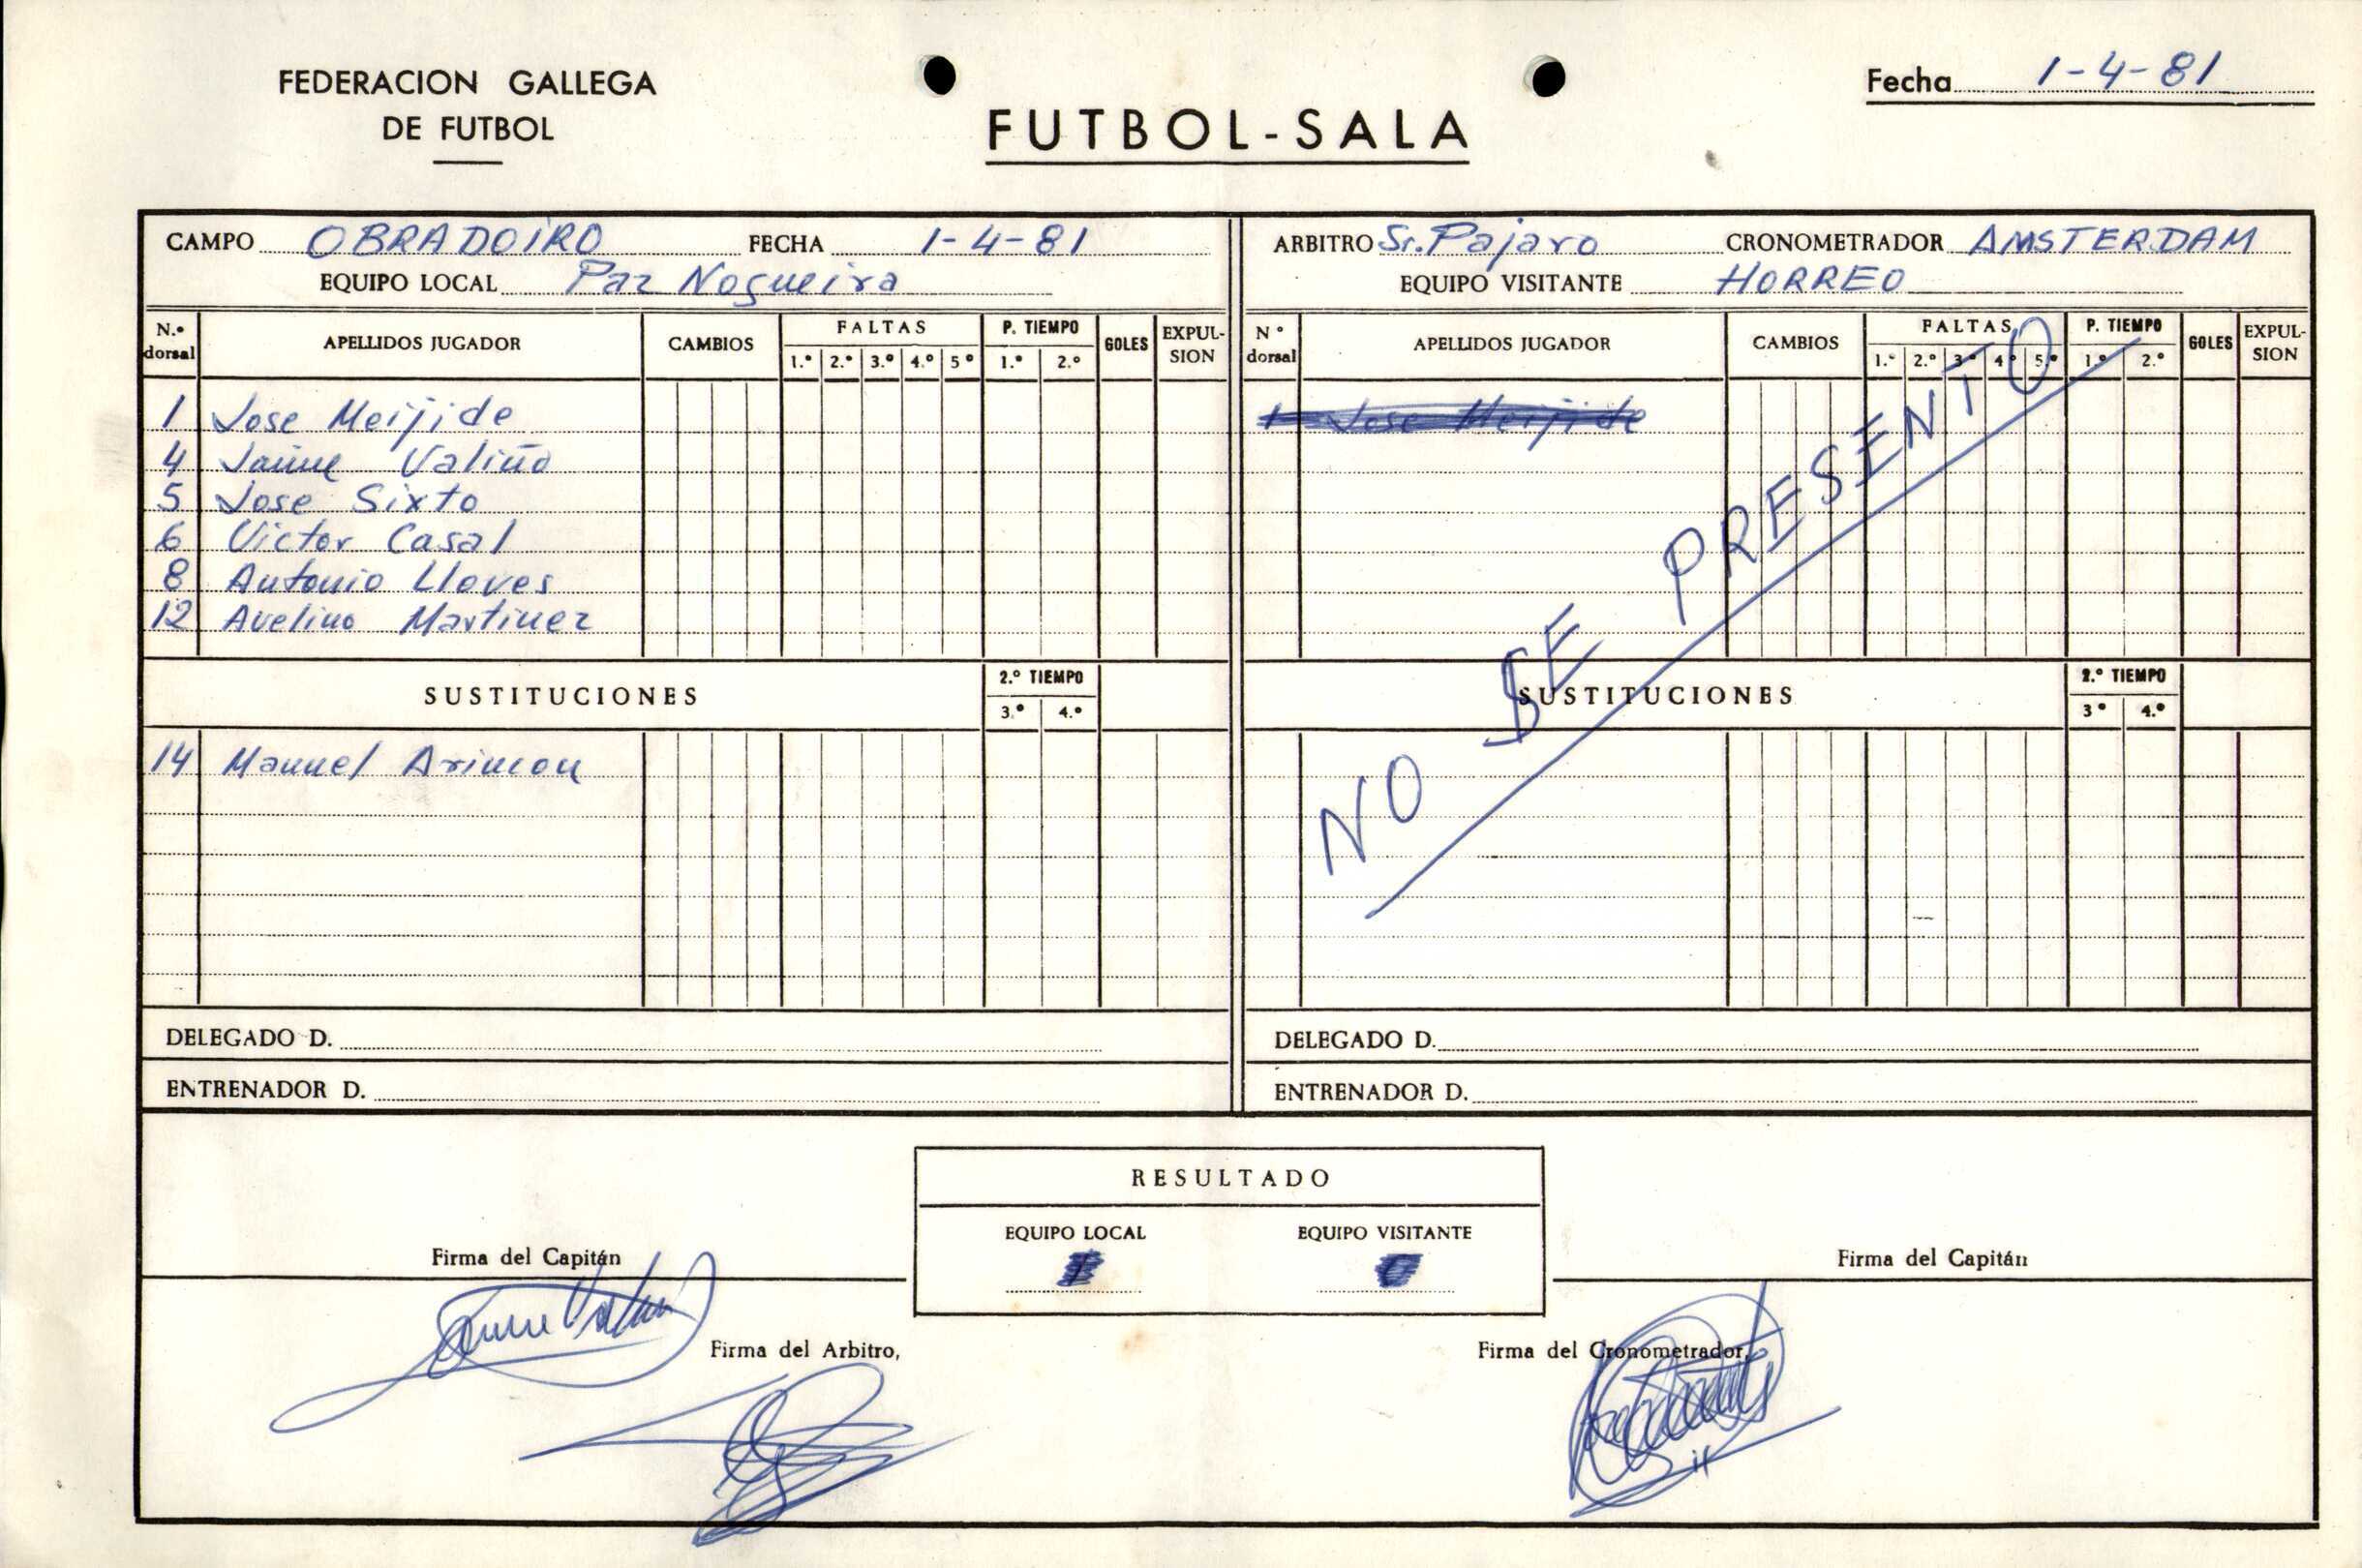 FEDERACION GALLEGA
DE FUTBOL
FUTBOL-SALA
Fecha 1-4-81
CAMPO OBRADOIRO FECHA 1-4-81
EQUIPO LOCAL Paz Nogueira
ARBITRO Sr. Pajaro CRONOMETRADOR AMSTERDAM
EQUIPO VISITANTE HORREO
N.º dorsal APELLIDOS JUGADOR CAMBIOS FALTAS 1.º 2.º 3.º 4.º 5º P. TIEMPO 1.º 2.º GOLES EXPUL-SION
1 Jose Meijide
4 Jaime Valiño
5 Jose Sixto
6 Victor Casal
8 Antonio Lloves
12 Avelino Martinez
SUSTITUCIONES 2.º TIEMPO 3.º 4.º
14 Manuel
DELEGADO D.
ENTRENADOR D.
Nº dorsal APELLIDOS JUGADOR CAMBIOS FALTAS 1.º 2.º 3º 4º 5º P. TIEMPO 1.º 2.º GOLES EXPUL-SION
1 Jose Meijide
NO SE PRESENTO
SUSTITUCIONES 2.º TIEMPO 3º 4.º
DELEGADO D.
ENTRENADOR D.
RESULTADO
EQUIPO LOCAL EQUIPO VISITANTE
Firma del Capitán
Firma del Capitán
Firma del Arbitro,
Firma del Cronometrador,